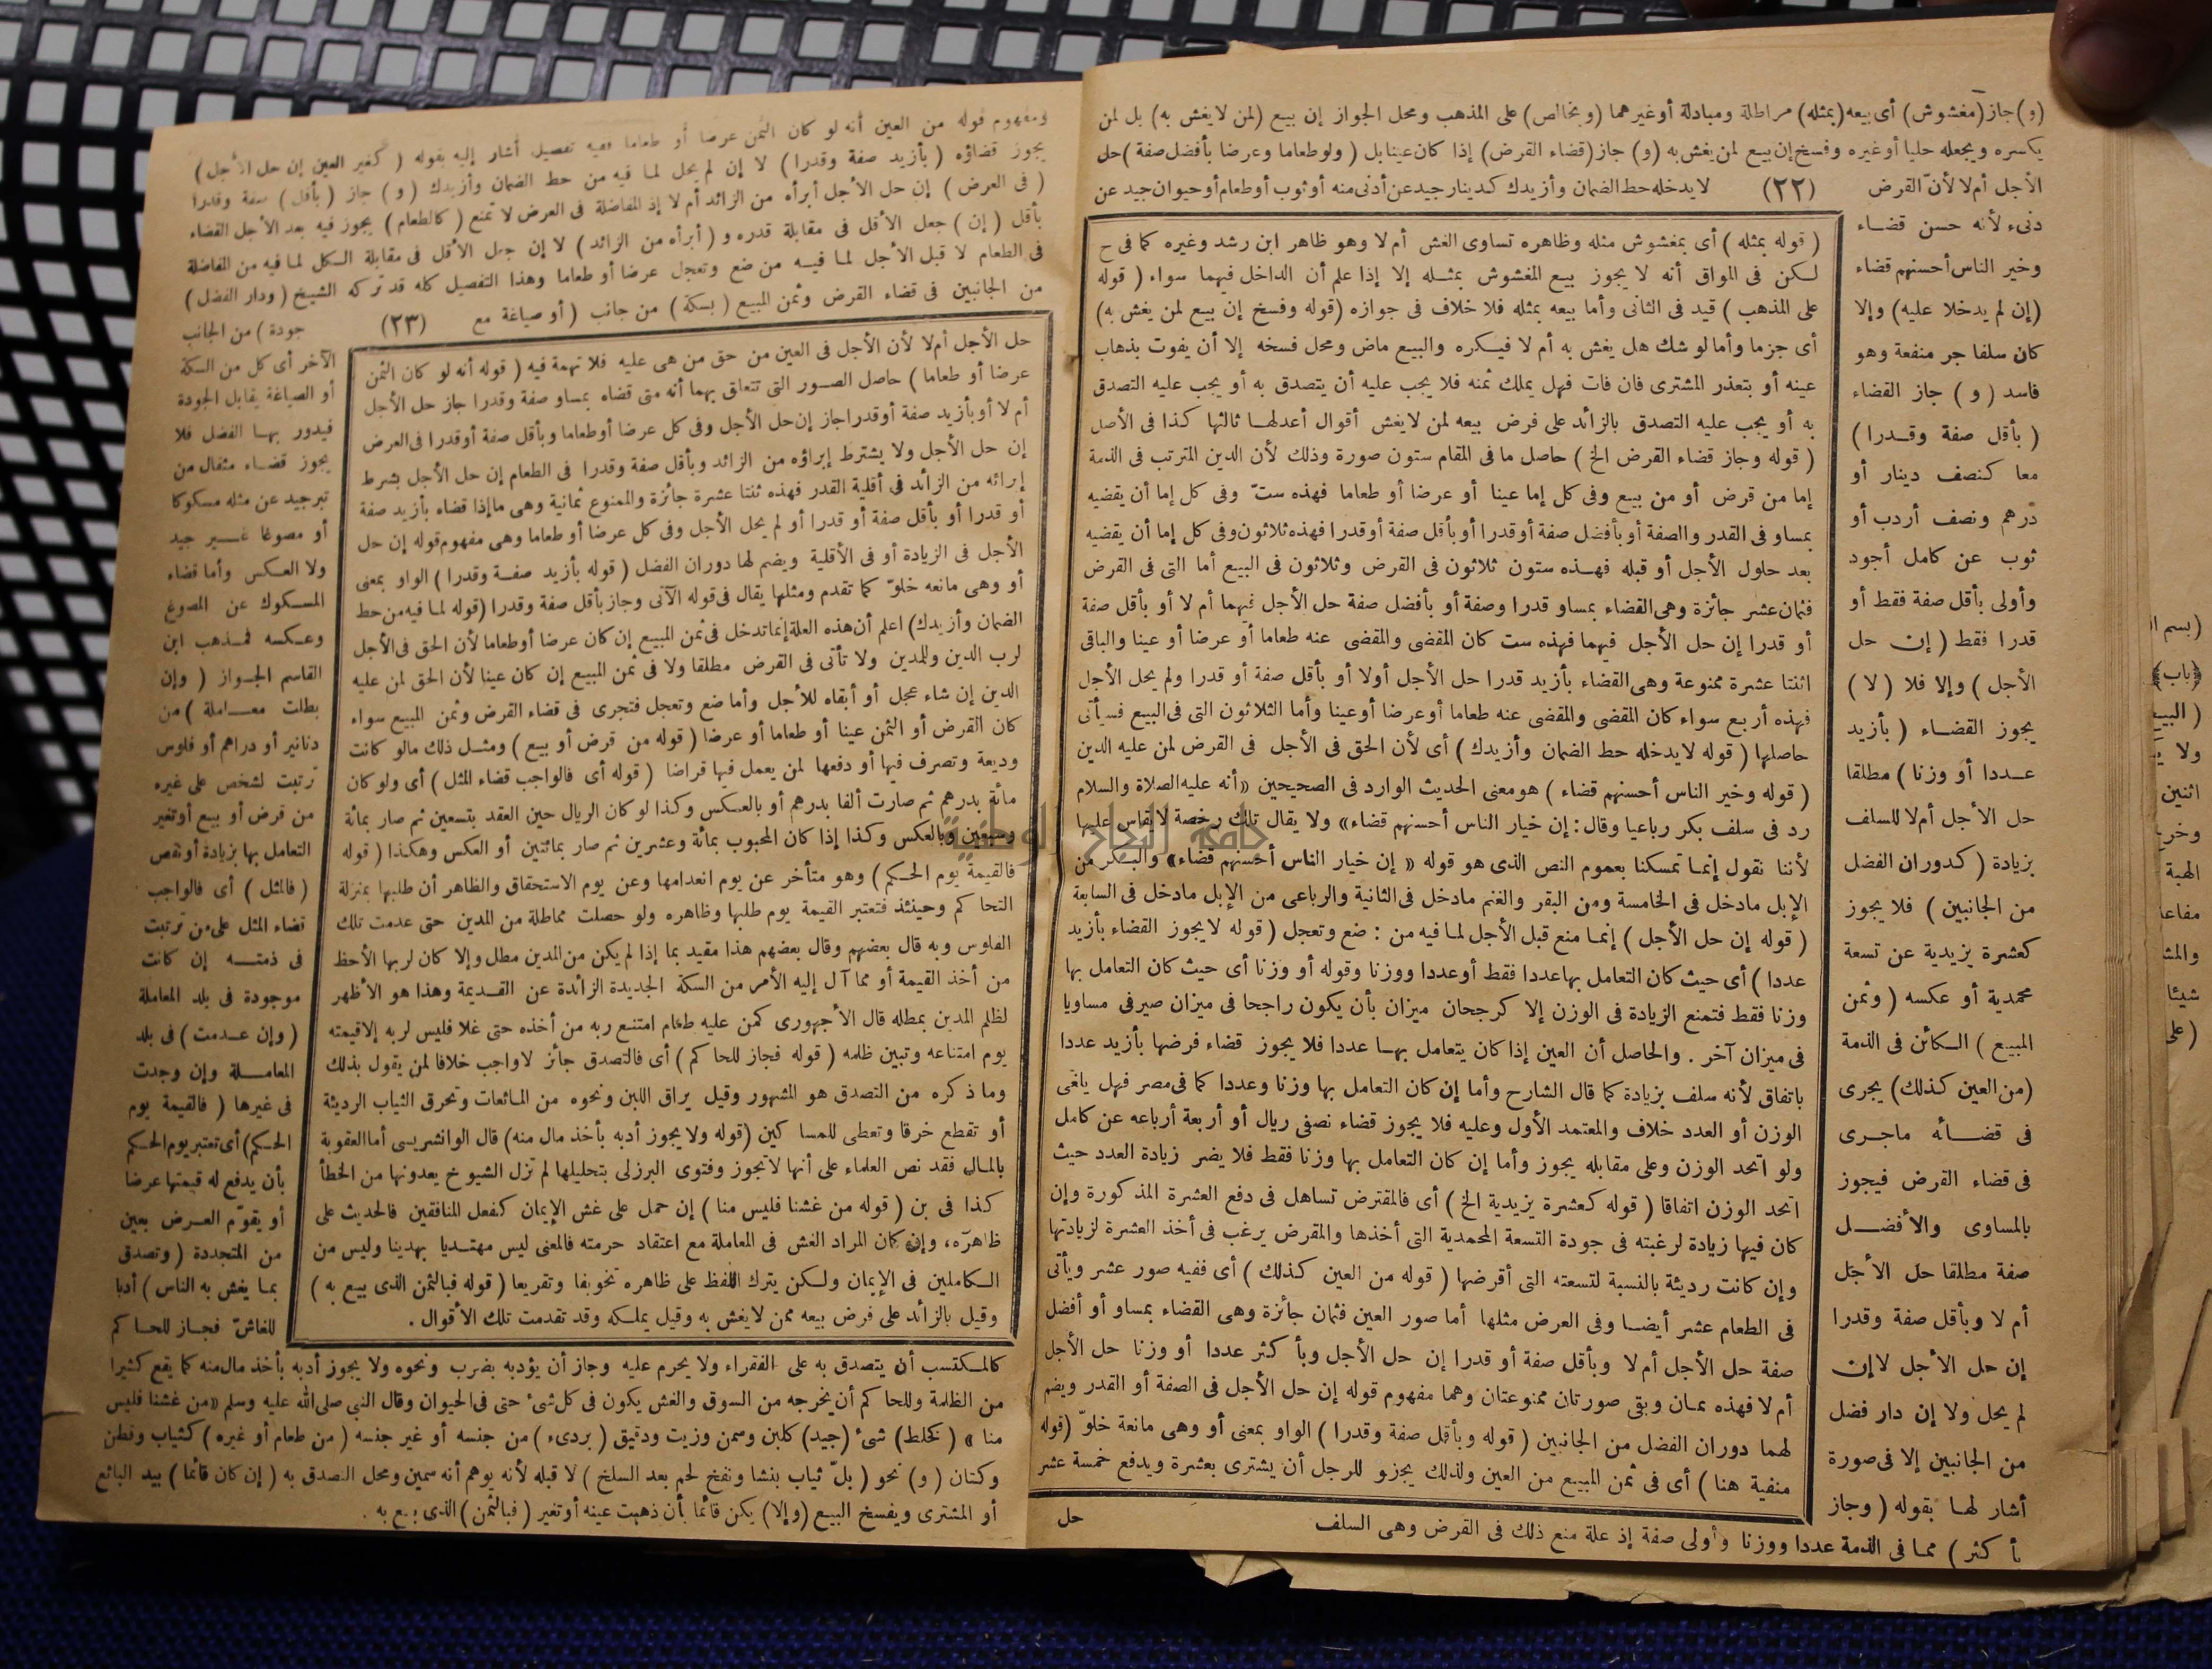 (و) جاز (مغشوش) أى بيعه (بمثله) مراطلة ومبادلة أوغيرهما (وبخالص) على المذهب ومحل الجواز إن بيع (لمن لايغش به) بل لمن
يكسره ويجعله حليا أوغيره وفسخ إن بيع لمن يغش به (و) جاز (قضاء القرض) إذا كان عينا بل (ولوطعاما وعرضا بأفضل صفة) حل
الأجل أم لا لأنّ القرض (٢٢) لايدخله حط الضمان وأزيدك كدينار جيد عن أدنى منه أوثوب أوطعام أوحيوان جيد عن
دنىء لأنه حسن قضاء
وخير الناس أحسنهم قضاء
(إن لم يدخلا عليه) وإلا
كان سلفا جر منفعة وهو
فاسد (و) جاز القضاء
(بأقل صفة وقدرا)
معا كنصف دينار أو
درهم ونصف أردب أو
ثوب عن كامل أجود
وأولى بأقل صفة فقط أو
قدرا فقط (إن حل
الأجل) وإلا فلا (لا)
يجوز القضاء (بأزيد
عددا أو وزنا) مطلقا
حل الأجل أم لا للسلف
بزيادة (كدوران الفضل
من الجانبين) فلا يجوز
كعشرة يزيدية عن تسعة
محمدية أو عكسه (وثمن
المبيع) الكائن فى الذمة
(من العين كذلك) يجرى
فى قضائه ماجرى
فى قضاء القرض فيجوز
بالمساوى والأفضل
صفة مطلقا حل الأجل
أم لا وبأقل صفة وقدرا
إن حل الأجل لا إن
لم يحل ولا إن دار فضل
من الجانبين إلا فى صورة
أشار لها بقوله (وجاز
بأكثر) مما فى الذمة عددا ووزنا وأولى صفة إذ علة منع ذلك فى القرض وهى السلف
(قوله بمثله) أى بمغشوش مثله وظاهره تساوى الغش أم لا وهو ظاهر ابن رشد وغيره كما فى ح
لكن فى المواق أنه لا يجوز بيع المغشوش بمثله إلا إذا علم أن الداخل فيهما سواء (قوله
على المذهب) قيد فى الثانى وأما بيعه بمثله فلا خلاف فى جوازه (قوله وفسخ إن بيع لمن يغش به)
أى جزما وأما لو شك هل يغش به أم لا فيكره والبيع ماض ومحل فسخه إلا أن يفوت بذهاب
عينه أو بتعذر المشترى فان فات فهل يملك ثمنه فلا يجب عليه أن يتصدق به أو يجب عليه التصدق
به أو يجب عليه التصدق بالزائد على فرض بيعه لمن لايغش أقوال أعدلها ثالثها كذا فى الأصل
(قوله وجاز قضاء القرض الخ) حاصل ما فى المقام ستون صورة وذلك لأن الدين المترتب فى الذمة
إما من قرض أو من بيع وفى كل إما عينا أو عرضا أو طعاما فهذه ستّ وفى كل إما أن يقضيه
بمساو فى القدر والصفة أو بأفضل صفة أوقدرا أو بأقل صفة أوقدرا فهذه ثلاثون وفى كل إما أن يقضيه
بعد حلول الأجل أو قبله فهذه ستون ثلاثون فى القرض وثلاثون فى البيع أما التى فى القرض
فثمان عشر جائزة وهى القضاء بمساو قدرا وصفة أو بأفضل صفة حل الأجل فيهما أم لا أو بأقل صفة
أو قدرا إن حل الأجل فيهما فهذه ست كان المقضى والمقضى عنه طعاما أو عرضا أو عينا والباقى
اثنتا عشرة ممنوعة وهى القضاء بأزيد قدرا حل الأجل أولا أو بأقل صفة أو قدرا ولم يحل الأجل
فهذه أربع سواء كان المقضى والمقضى عنه طعاما أوعرضا أوعينا وأما الثلاثون التى فى البيع فسيأتى
حاصلها (قوله لايدخله حط الضمان وأزيدك) أى لأن الحق فى الأجل فى القرض لمن عليه الدين
(قوله وخير الناس أحسنهم قضاء) هو معنى الحديث الوارد فى الصحيحين «أنه عليه الصلاة والسلام
رد فى سلف بكر رباعيا وقال: إن خيار الناس أحسنهم قضاء» ولا يقال تلك رخصة لايقاس عليها
لأننا نقول إنما تمسكنا بعموم النص الذى هو قوله «إن خيار الناس أحسنهم قضاء» والبكر من
الإبل مادخل فى الخامسة ومن البقر والغنم مادخل فى الثانية والرباعى من الإبل مادخل فى السابعة
(قوله إن حل الأجل) إنما منع قبل الأجل لما فيه من: ضع وتعجل (قوله لايجوز القضاء بأزيد
عددا) أى حيث كان التعامل بها عددا فقط أوعددا ووزنا وقوله أو وزنا أى حيث كان التعامل بها
وزنا فقط فتمنع الزيادة فى الوزن إلا كرجحان ميزان بأن يكون راجحا فى ميزان صيرفى مساويا
فى ميزان آخر. والحاصل أن العين إذا كان يتعامل بها عددا فلا يجوز قضاء قرضها بأزيد عددا
باتفاق لأنه سلف بزيادة كما قال الشارح وأما إن كان التعامل بها وزنا وعددا كما فى مصر فهل يلغى
الوزن أو العدد خلاف والمعتمد الأول وعليه فلا يجوز قضاء نصفى ريال أو أربعة أرباعه عن كامل
ولو اتحد الوزن وعلى مقابله يجوز وأما إن كان التعامل بها وزنا فقط فلا يضر زيادة العدد حيث
اتحد الوزن اتفاقا (قوله كعشرة يزيدية الخ) أى فالمقترض تساهل فى دفع العشرة المذكورة وإن
كان فيها زيادة لرغبته فى جودة التسعة المحمدية التى أخذها والمقرض يرغب فى أخذ العشرة لزيادتها
وإن كانت رديئة بالنسبة لتسعته التى أقرضها (قوله من العين كذلك) أى ففيه صور عشر ويأتى
فى الطعام عشر أيضا وفى العرض مثلها أما صور العين فثمان جائزة وهى القضاء بمساو أو أفضل
صفة حل الأجل أم لا وبأقل صفة أو قدرا إن حل الأجل وبأكثر عددا أو وزنا حل الأجل
أم لا فهذه ثمان وبقى صورتان ممنوعتان وهما مفهوم قوله إن حل الأجل فى الصفة أو القدر ويضم
لهما دوران الفضل من الجانبين (قوله وبأقل صفة وقدرا) الواو بمعنى أو وهى مانعة خلوّ (قوله
منفية هنا) أى فى ثمن المبيع من العين ولذلك يجوز للرجل أن يشترى بعشرة ويدفع خمسة عشر
حل
ومفهوم قوله من العين أنه لو كان الثمن عرضا أو طعاما ففيه تفصيل أشار إليه بقوله (كغير العين إن حل الأجل)
يجوز قضاؤه (بأزيد صفة وقدرا) لا إن لم يحل لما فيه من حط الضمان وأزيدك (و) جاز (بأقل) صفة وقدرا
(فى العرض) إن حل الأجل أبرأه من الزائد أم لا إذ المفاضلة فى العرض لا تمنع (كالطعام) يجوز فيه بعد الأجل القضاء
بأقل (إن) جعل الأقل فى مقابلة قدره و (أبرأه من الزائد) لا إن جعل الأقل فى مقابلة الكل لما فيه من المفاضلة
فى الطعام لا قبل الأجل لما فيه من ضع وتعجل عرضا أو طعاما وهذا التفصيل كله قد تركه الشيخ (ودار الفضل)
من الجانبين فى قضاء القرض وثمن المبيع (بسكة) من جانب (أو صياغة مع (٢٣) جودة) من الجانب
الآخر أى كل من السكة
أو الصياغة يقابل الجودة
فيدور بها الفضل فلا
يجوز قضاء مثقال من
تبر جيد عن مثله مسكوكا
أو مصوغا غير جيد
ولا العكس وأما قضاء
المسكوك عن المصوغ
وعكسه فمذهب ابن
القاسم الجواز (وإن
بطلت معاملة) من
دنانير أو دراهم أو فلوس
ترتبت لشخص على غيره
من قرض أو بيع أوتغير
التعامل بها بزيادة أو نقص
(فالمثل) أى فالواجب
قضاء المثل على من ترتبت
فى ذمته إن كانت
موجودة فى بلد المعاملة
(وإن عدمت) فى بلد
المعاملة وإن وجدت
فى غيرها (فالقيمة يوم
الحكم) أى تعتبر يوم الحكم
بأن يدفع له قيمتها عرضا
أو يقوّم العرض بعين
من المتجددة (وتصدق
بما يغش به الناس) أدبا
للغاشّ فجاز للحاكم
حل الأجل أم لا لأن الأجل فى العين من حق من هى عليه فلا تهمة فيه (قوله أنه لو كان الثمن
عرضا أو طعاما) حاصل الصور التى تتعلق بهما أنه متى قضاه بمساو صفة وقدرا جاز حل الأجل
أم لا أو بأزيد صفة أوقدرا جاز إن حل الأجل وفى كل عرضا أوطعاما وبأقل صفة أوقدرا فى العرض
إن حل الأجل ولا يشترط إبراؤه من الزائد وبأقل صفة وقدرا فى الطعام إن حل الأجل بشرط
إبرائه من الزائد فى أقلية القدر فهذه ثنتا عشرة جائزة والممنوع ثمانية وهى ماإذا قضاه بأزيد صفة
أو قدرا أو بأقل صفة أو قدرا أو لم يحل الأجل وفى كل عرضا أو طعاما وهى مفهوم قوله إن حل
الأجل فى الزيادة أو فى الأقلية ويضم لها دوران الفضل (قوله بأزيد صفة وقدرا) الواو بمعنى
أو وهى مانعه خلوّ كما تقدم ومثلها يقال فى قوله الآتى وجاز بأقل صفة وقدرا (قوله لما فيه من حط
الضمان وأزيدك) اعلم أن هذه العلة إنما تدخل فى ثمن المبيع إن كان عرضا أوطعاما لأن الحق فى الأجل
لرب الدين وللمدين ولا تأتى فى القرض مطلقا ولا فى ثمن المبيع إن كان عينا لأن الحق لمن عليه
الدين إن شاء عجل أو أبقاه للأجل وأما ضع وتعجل فتجرى فى قضاء القرض وثمن المبيع سواء
كان القرض أو الثمن عينا أو طعاما أو عرضا (قوله من قرض أو بيع) ومثل ذلك مالو كانت
وديعة وتصرف فيها أو دفعها لمن يعمل فيها قراضا (قوله أى فالواجب قضاء المثل) أى ولو كان
مائة بدرهم ثم صارت ألفا بدرهم أو بالعكس وكذا لو كان الريال حين العقد بتسعين ثم صار بمائة
وسبعين وبالعكس وكذا إذا كان المحبوب بمائة وعشرين ثم صار بمائتين أو العكس وهكذا (قوله
فالقيمة يوم الحكم) وهو متأخر عن يوم انعدامها وعن يوم الاستحقاق والظاهر أن طلبها بمنزلة
التحاكم وحينئذ فتعتبر القيمة يوم طلبها وظاهره ولو حصلت مماطلة من المدين حتى عدمت تلك
الفلوس وبه قال بعضهم وقال بعضهم هذا مقيد بما إذا لم يكن من المدين مطل وإلا كان لربها الأحظ
من أخذ القيمة أو مما آل إليه الأمر من السكة الجديدة الزائدة عن القديمة وهذا هو الأظهر
لظلم المدين بمطله قال الأجهورى كمن عليه طعام امتنع ربه من أخذه حتى غلا فليس لربه إلاقيمته
يوم امتناعه وتبين ظلمه (قوله فجاز للحاكم) أى فالتصدق جائز لاواجب خلافا لمن يقول بذلك
وما ذكره من التصدق هو المشهور وقيل يراق اللبن ونحوه من المائعات وتحرق الثياب الرديئة
أو تقطع خرقا وتعطى للمساكين (قوله ولا يجوز أدبه بأخذ مال منه) قال الوانشريسى أما العقوبة
بالمال فقد نص العلماء على أنها لاتجوز وفتوى البرزلى بتحليلها لم تزل الشيوخ يعدونها من الخطأ
كذا فى بن (قوله من غشنا فليس منا) إن حمل على غش الإيمان كفعل المنافقين فالحديث على
ظاهره، وإن كان المراد الغش فى المعاملة مع اعتقاد حرمته فالمعنى ليس مهتديا بهدينا وليس من
الكاملين فى الإيمان ولكن يترك اللفظ على ظاهره تخويفا وتقريعا (قوله فبالثمن الذى بيع به)
وقيل بالزائد على فرض بيعه ممن لايغش به وقيل يملكه وقد تقدمت تلك الأقوال.
كالمكتسب أن يتصدق به على الفقراء ولا يحرم عليه وجاز أن يؤدبه بضرب ونحوه ولا يجوز أدبه بأخذ مال منه كما يقع كثيرا
من الظلمة وللحاكم أن يخرجه من السوق والغش يكون فى كل شىء حتى فى الحيوان وقال النبى صلى الله عليه وسلم «من غشنا فليس
منا» (كخلط) شىء (جيد) كلبن وسمن وزيت ودقيق (بردىء) من جنسه أو غير جنسه (من طعام أو غيره) كثياب وقطن
وكتان (و) نحو (بلّ ثياب بنشا ونفخ لحم بعد السلخ) لا قبله لأنه يوهم أنه سمين ومحل التصدق به (إن كان قائما) بيد البائع
أو المشترى ويفسخ البيع (وإلا) يكن قائما بأن ذهبت عينه أوتغير (فبالثمن) الذى بيع به.
جامعة النجاح الوطنية